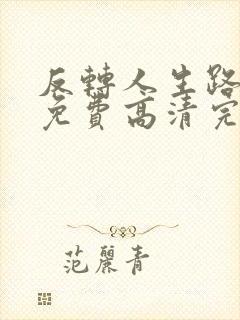 反轉人生路
免費高清完
范麗青